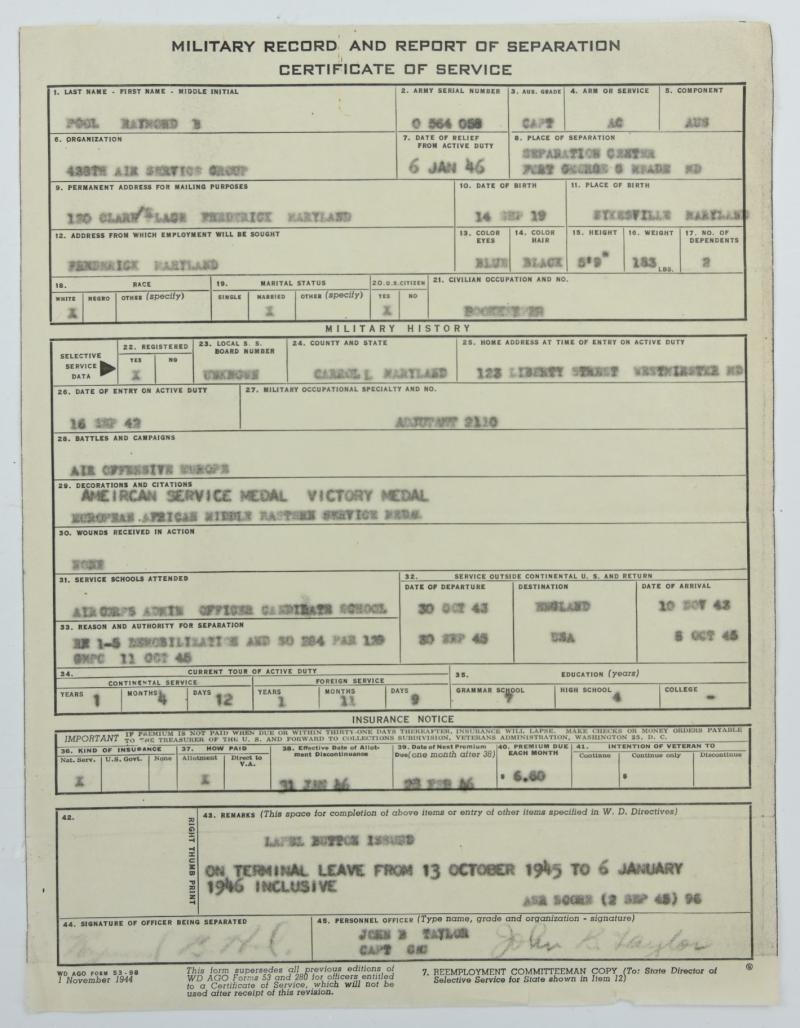 MILITARY RECORD AND REPORT OF SEPARATION
CERTIFICATE OF SERVICE
1. LAST NAME - FIRST NAME - MIDDLE INITIAL
2. ARMY SERIAL NUMBER
3. AUS. GRADE
4. ARM OR SERVICE
5. COMPONENT
POOL RAYMOND B
O 564 058
CAPT
AC
AUS
6. ORGANIZATION
7. DATE OF RELIEF FROM ACTIVE DUTY
8. PLACE OF SEPARATION
438TH AIR SERVICE GROUP
6 JAN 46
SEPARATION CENTER
FORT GEORGE G MEADE MD
9. PERMANENT ADDRESS FOR MAILING PURPOSES
10. DATE OF BIRTH
11. PLACE OF BIRTH
FREDERICK MARYLAND
14 SEP 19
SYKESVILLE MARYLAND
12. ADDRESS FROM WHICH EMPLOYMENT WILL BE SOUGHT
13. COLOR EYES
14. COLOR HAIR
15. HEIGHT
16. WEIGHT
17. NO. OF DEPENDENTS
FREDERICK MARYLAND
BLUE
BLACK
5'9"
183 LBS.
2
18. RACE
19. MARITAL STATUS
20. U.S. CITIZEN
21. CIVILIAN OCCUPATION AND NO.
WHITE NEGRO OTHER (specify)
SINGLE MARRIED OTHER (specify)
YES NO
X
X
X
BOOKKEEPER
MILITARY HISTORY
SELECTIVE SERVICE DATA
22. REGISTERED
YES NO
23. LOCAL S. S. BOARD NUMBER
24. COUNTY AND STATE
25. HOME ADDRESS AT TIME OF ENTRY ON ACTIVE DUTY
X
UNKNOWN
CARROLL MARYLAND
123 LIBERTY STREET WESTMINSTER MD
26. DATE OF ENTRY ON ACTIVE DUTY
27. MILITARY OCCUPATIONAL SPECIALTY AND NO.
16 SEP 42
ADJUTANT 2110
28. BATTLES AND CAMPAIGNS
AIR OFFENSIVE EUROPE
29. DECORATIONS AND CITATIONS
AMEIRCAN SERVICE MEDAL VICTORY MEDAL
EUROPEAN AFRICAN MIDDLE EASTERN SERVICE MEDAL
30. WOUNDS RECEIVED IN ACTION
NONE
31. SERVICE SCHOOLS ATTENDED
32. SERVICE OUTSIDE CONTINENTAL U. S. AND RETURN
DATE OF DEPARTURE
DESTINATION
DATE OF ARRIVAL
AIR CORPS ADMIN OFFICER CANDIDATE SCHOOL
30 OCT 43
ENGLAND
10 NOV 43
33. REASON AND AUTHORITY FOR SEPARATION
RR 1-5 DEMOBILIZATION AND SO 284 PAR 129
30 SEP 45
USA
5 OCT 45
11 OCT 45
34. CURRENT TOUR OF ACTIVE DUTY
35. EDUCATION (years)
CONTINENTAL SERVICE
FOREIGN SERVICE
YEARS 1
MONTHS 4
DAYS 12
YEARS 1
MONTHS 11
DAYS 9
GRAMMAR SCHOOL 7
HIGH SCHOOL 4
COLLEGE -
INSURANCE NOTICE
IMPORTANT IF PREMIUM IS NOT PAID WHEN DUE OR WITHIN THIRTY-ONE DAYS THEREAFTER, INSURANCE WILL LAPSE. MAKE CHECKS OR MONEY ORDERS PAYABLE
TO THE TREASURER OF THE U. S. AND FORWARD TO COLLECTIONS SUBDIVISION, VETERANS ADMINISTRATION, WASHINGTON 25, D. C.
36. KIND OF INSURANCE
37. HOW PAID
38. Effective Date of Allotment Discontinuance
39. Date of Next Premium Due (one month after 38)
40. PREMIUM DUE EACH MONTH
41. INTENTION OF VETERAN TO
Nat. Serv. U.S. Govt. None
Allotment Direct to V.A.
Continue Continue only Discontinue
X
X
31 JAN 46
28 FEB 46
$ 6.60
$
42.
RIGHT THUMB PRINT
43. REMARKS (This space for completion of above items or entry of other items specified in W. D. Directives)
LAPEL BUTTON ISSUED
ON TERMINAL LEAVE FROM 13 OCTOBER 1945 TO 6 JANUARY
1946 INCLUSIVE
ASR SCORE (2 SEP 45) 96
44. SIGNATURE OF OFFICER BEING SEPARATED
45. PERSONNEL OFFICER (Type name, grade and organization - signature)
JOHN B TAYLOR
CAPT
John B. Taylor
WD AGO FORM 53-98
1 November 1944
This form supersedes all previous editions of
WD AGO Forms 53 and 280 for officers entitled
to a Certificate of Service, which will not be
used after receipt of this revision.
7. REEMPLOYMENT COMMITTEEMAN COPY (To: State Director of
Selective Service for State shown in Item 12)